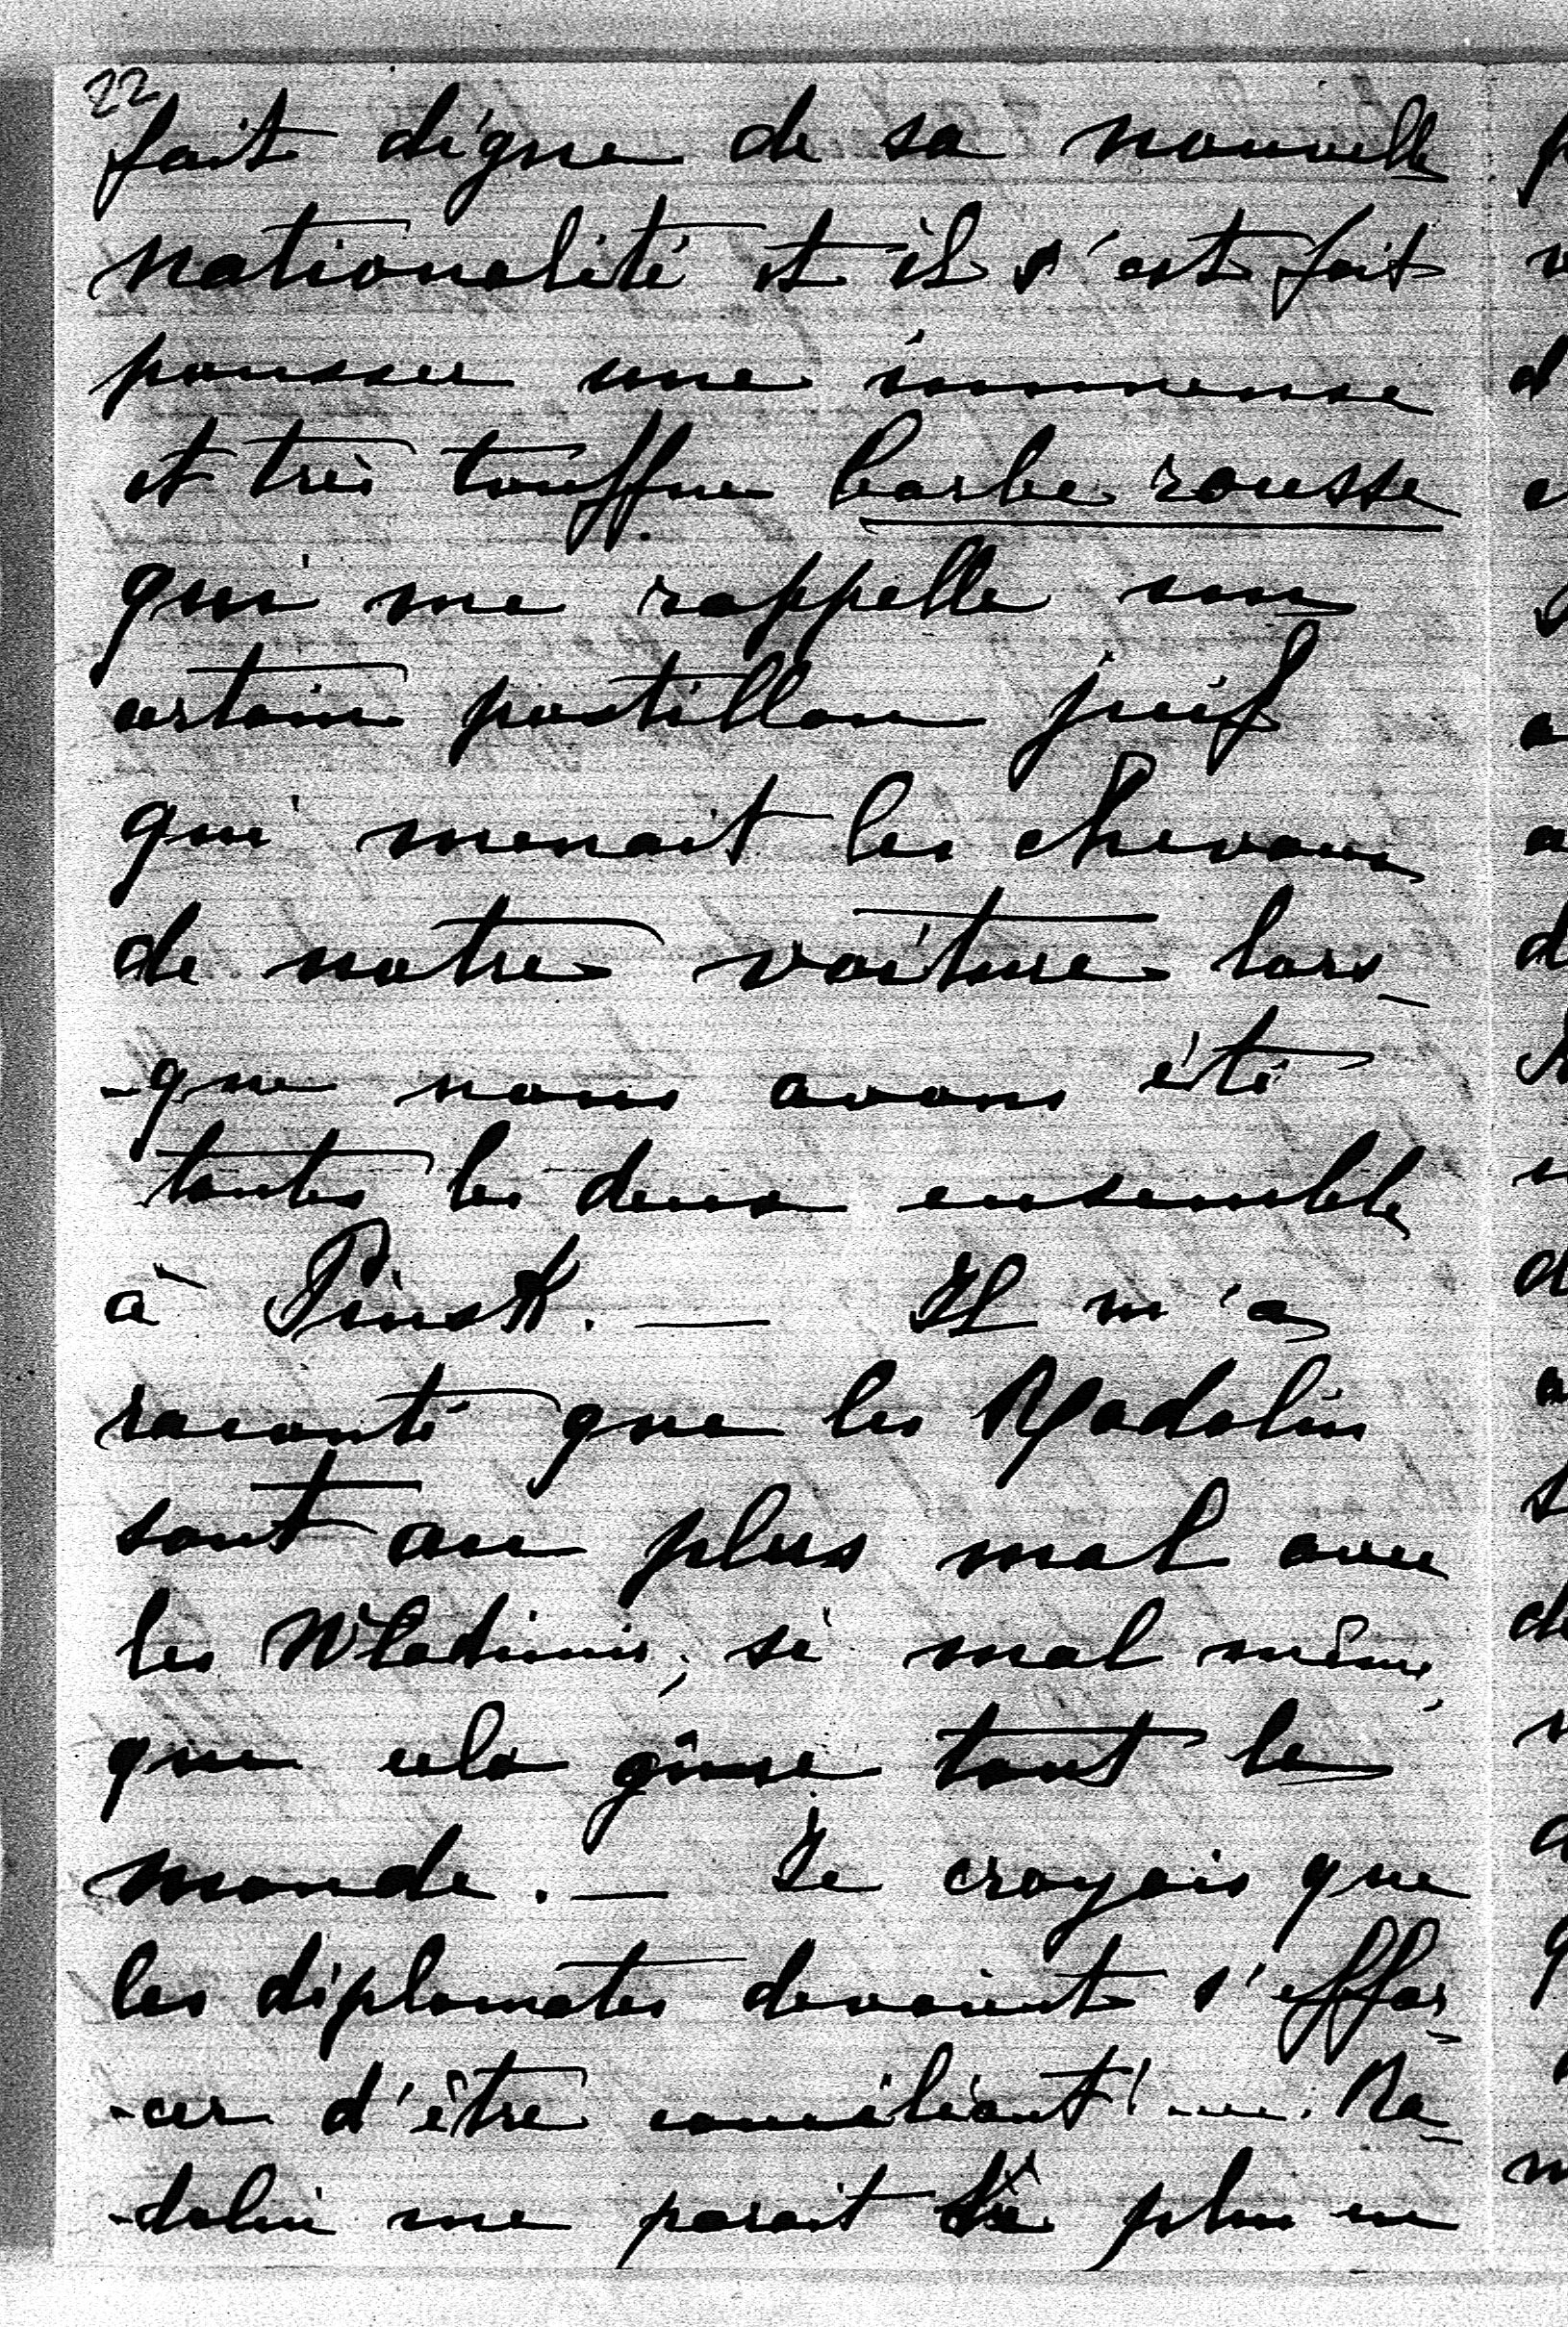 22
fait digne de sa nouvelle
nationalité et il s'est fait
pousser une immense
et très touffue barbe rousse
qui me rappelle un
certain postillon juif
qui menait les chevaux
de notre voiture lors-
-que nous avons été
toutes les deux ensemble
à Pinsk. — Il m'a
raconté que les Radolin
sont au plus mal avec
les Wladimir, si mal même
que cela gêne tout le
monde. — Je croyais que
les diplomates devaient s'effor-
-cer d'être conciliant! .... Ra-
-dolin me parait de plus en